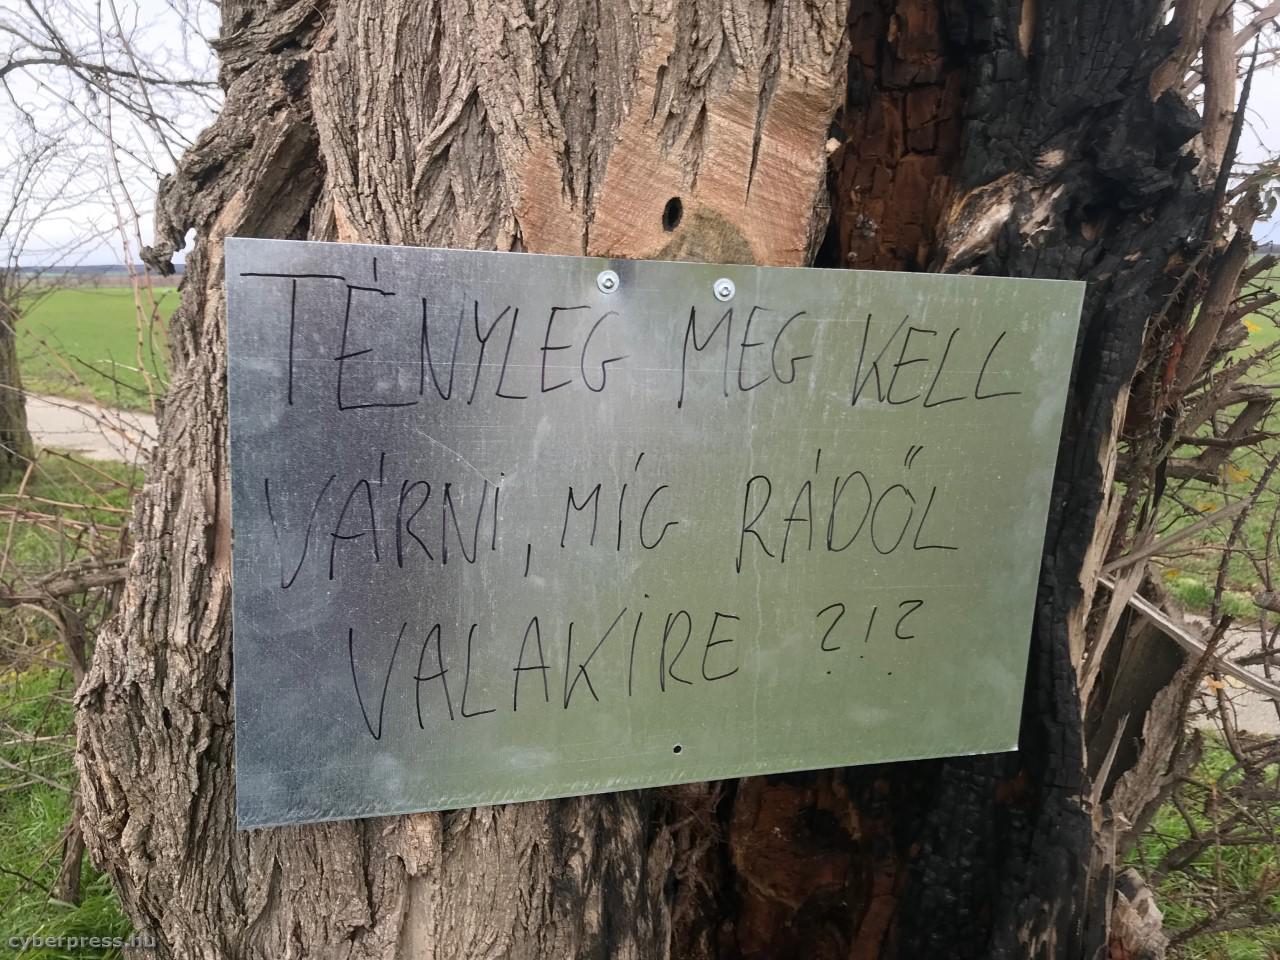 TÉNYLEG MEG KELL
VÁRNI, MÍG RÁDŐL
VALAKIRE ?!?
cyberpress.hu